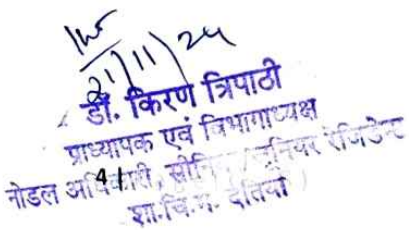 21/11/24
डॉ. किरण त्रिपाठी
प्राध्यापक एवं विभागाध्यक्ष
नोडल अधिकारी, सीनियर/जूनियर रेजिडेन्ट
शा.चि.म. दतिया